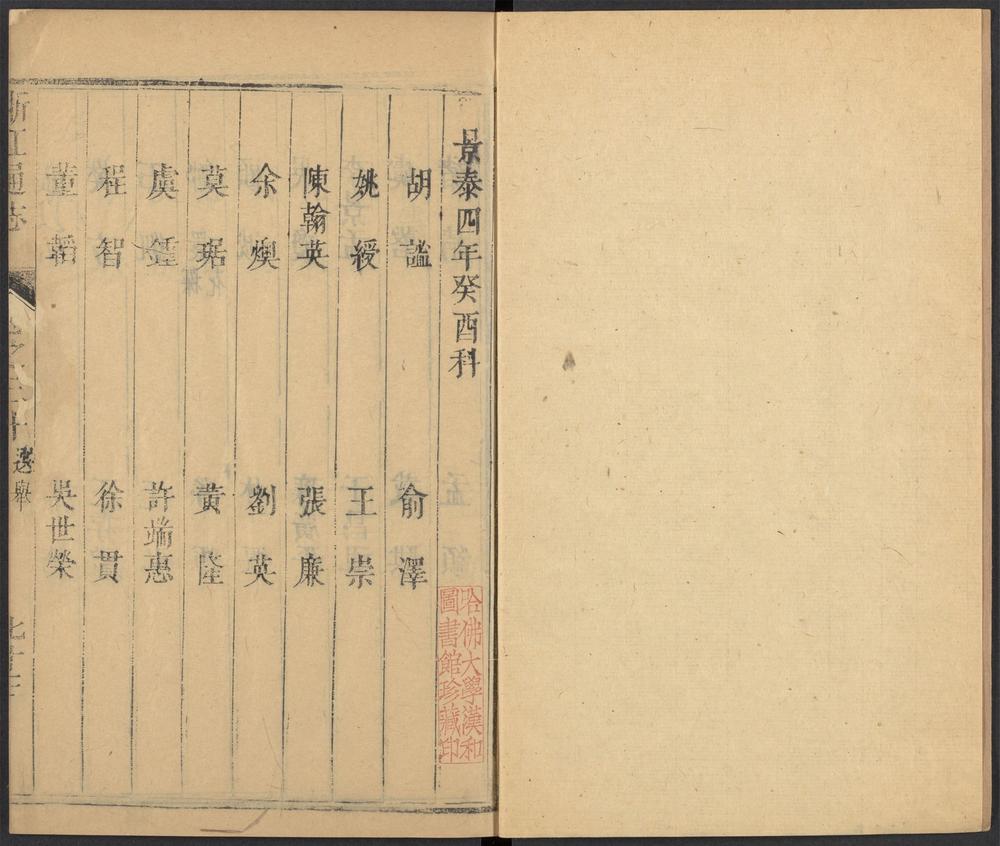 景泰四年癸酉科
胡謐
俞澤
姚綬
王崇
陳翰英
張廉
余煥
劉英
莫琚
黃隆
虞鍾
許端惠
程智
徐貫
董韜
吳世榮
浙江通志
選舉
哈佛大學漢和
圖書館珍藏印